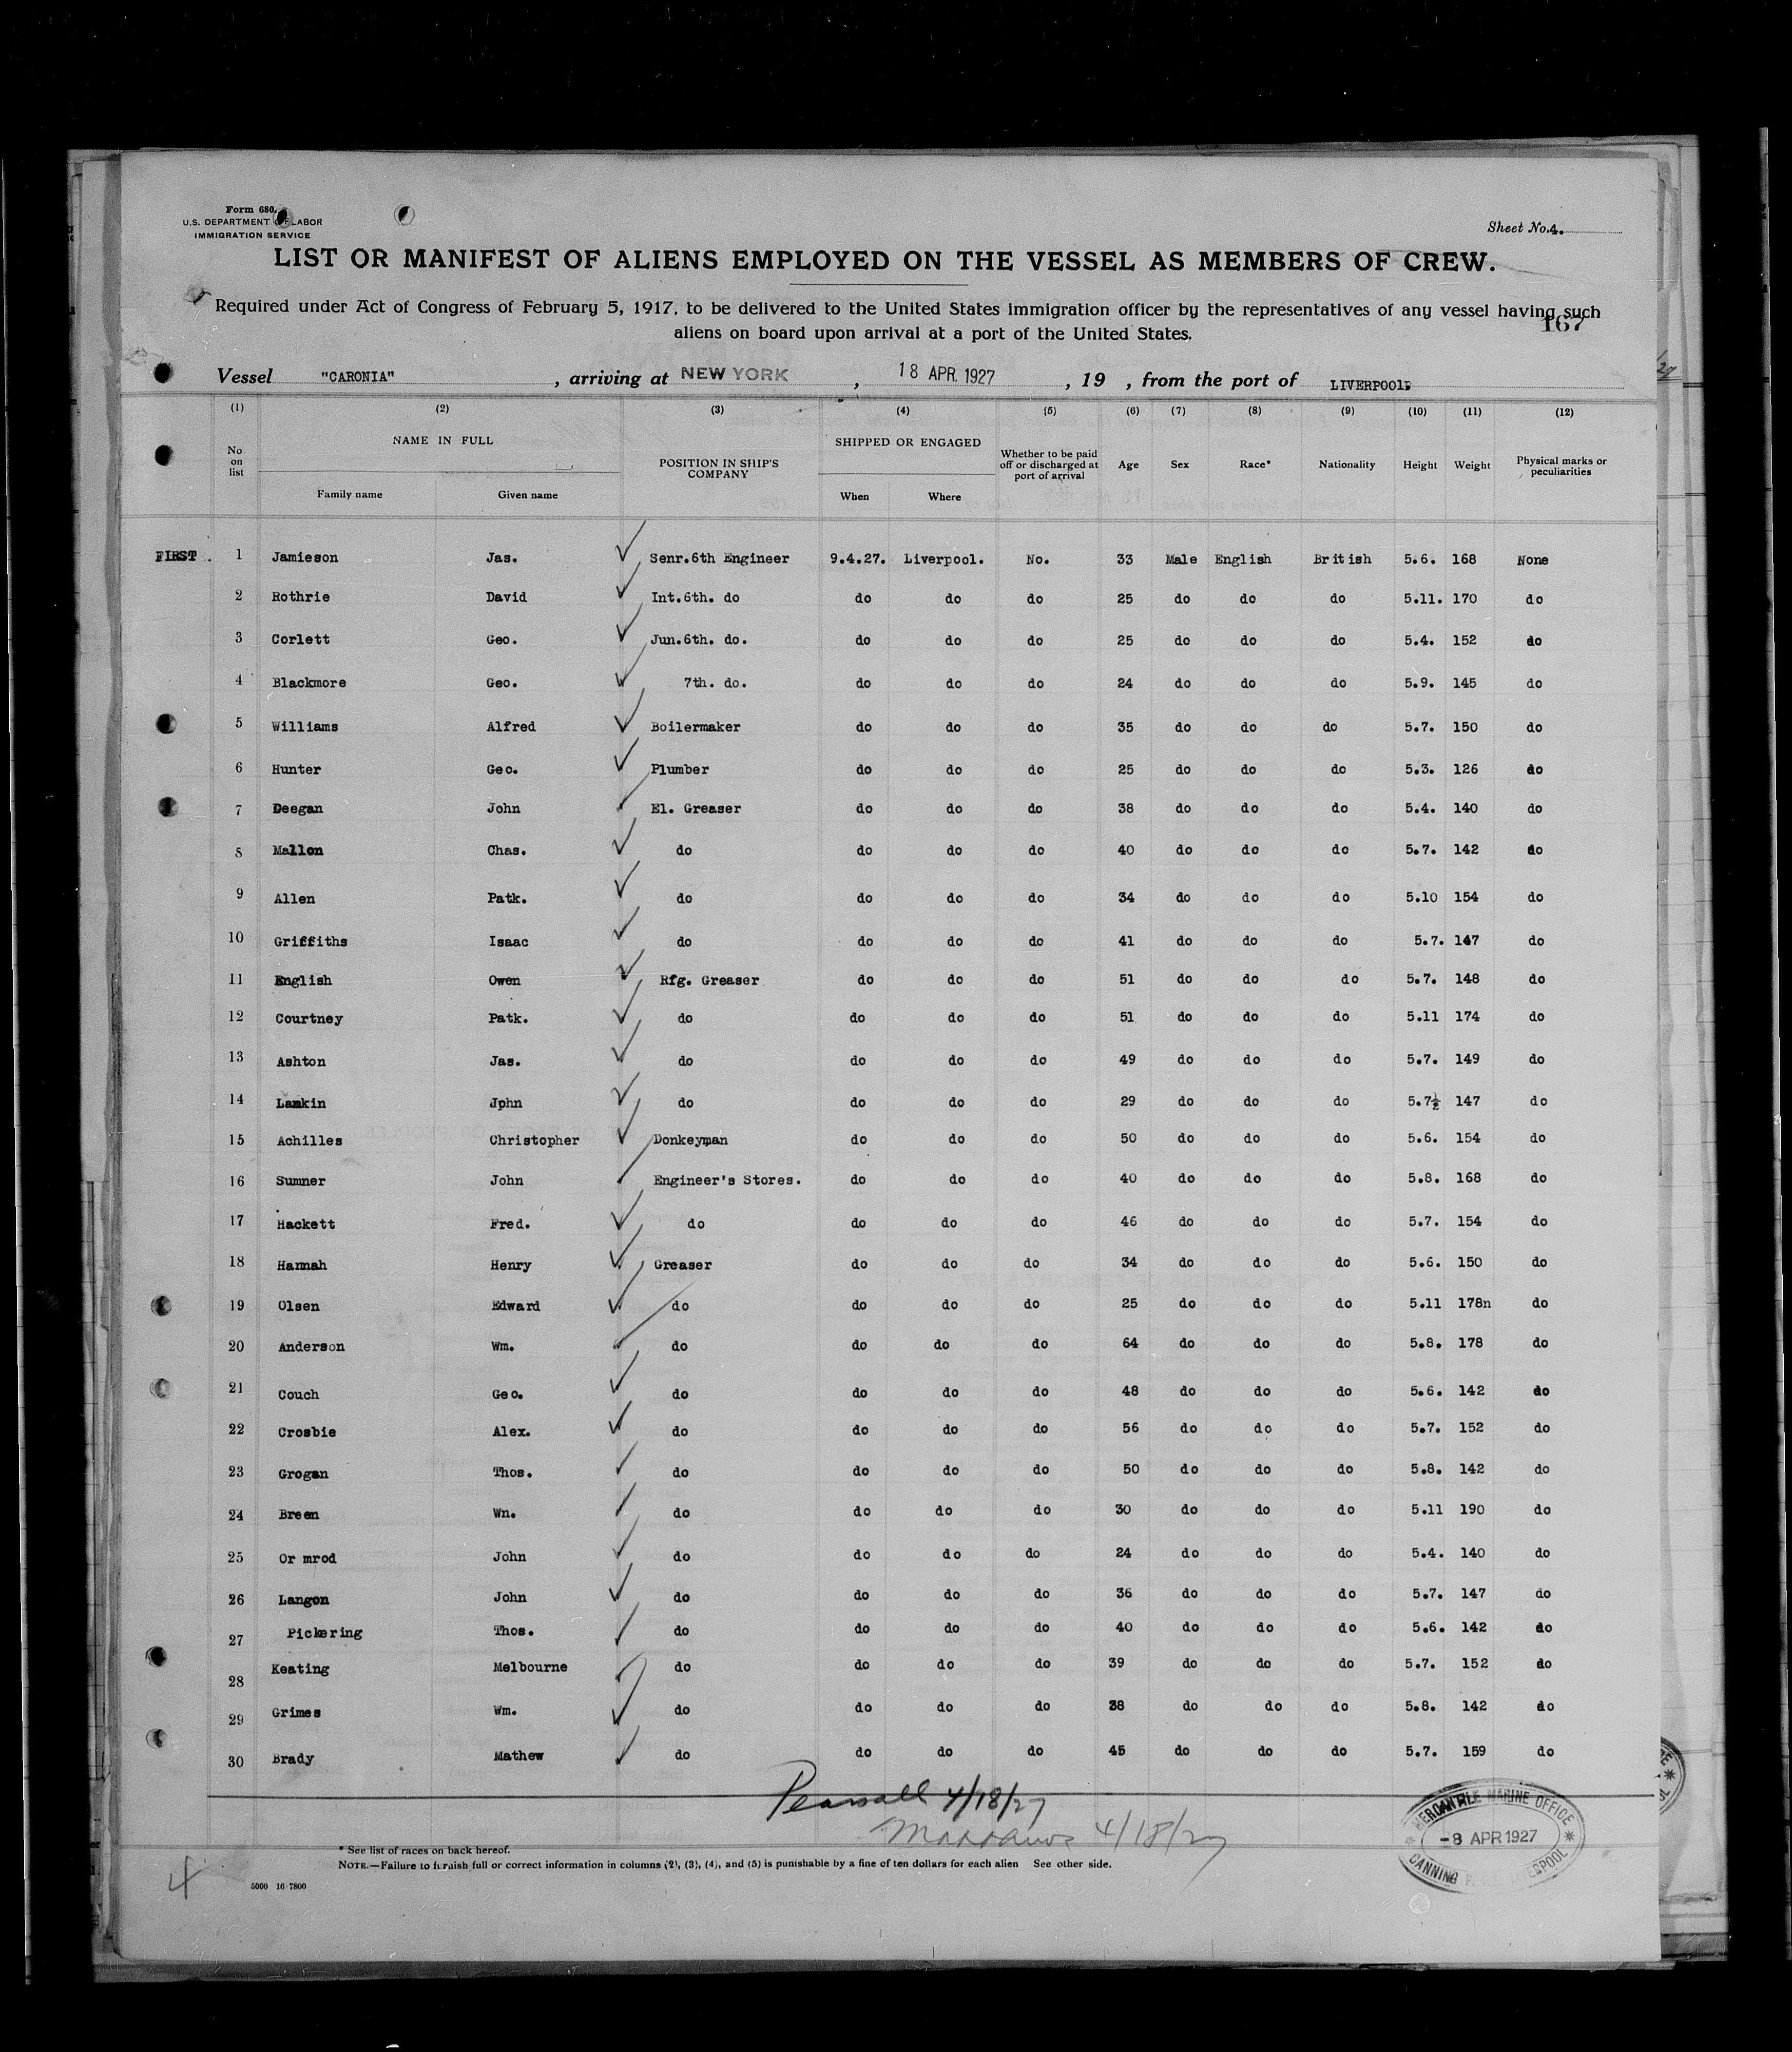 Form 680.
U.S. DEPARTMENT OF LABOR
IMMIGRATION SERVICE
Sheet No. 4.
LIST OR MANIFEST OF ALIENS EMPLOYED ON THE VESSEL AS MEMBERS OF CREW.
Required under Act of Congress of February 5, 1917, to be delivered to the United States immigration officer by the representatives of any vessel having such
aliens on board upon arrival at a port of the United States.
167
Vessel "CARONIA" , arriving at NEW YORK , 18 APR. 1927 , 19 , from the port of LIVERPOOL
(1) (2) (3) (4) (5) (6) (7) (8) (9) (10) (11) (12)
No on list NAME IN FULL Family name Given name POSITION IN SHIP'S COMPANY SHIPPED OR ENGAGED When Where Whether to be paid off or discharged at port of arrival Age Sex Race* Nationality Height Weight Physical marks or peculiarities
FIRST . 1 Jamieson Jas. Senr.6th Engineer 9.4.27. Liverpool. No. 33 Male English British 5.6. 168 None
2 Rothrie David Int.6th. do do do do 25 do do do 5.11. 170 do
3 Corlett Geo. Jun.6th. do. do do do 25 do do do 5.4. 152 do
4 Blackmore Geo. 7th. do. do do do 24 do do do 5.9. 145 do
5 Williams Alfred Boilermaker do do do 35 do do do 5.7. 150 do
6 Hunter Geo. Plumber do do do 25 do do do 5.3. 126 do
7 Deegan John El. Greaser do do do 38 do do do 5.4. 140 do
8 Mallon Chas. do do do do 40 do do do 5.7. 142 do
9 Allen Patk. do do do do 34 do do do 5.10 154 do
10 Griffiths Isaac do do do do 41 do do do 5.7. 147 do
11 English Owen Rfg. Greaser do do do 51 do do do 5.7. 148 do
12 Courtney Patk. do do do do 51 do do do 5.11 174 do
13 Ashton Jas. do do do do 49 do do do 5.7. 149 do
14 Jphn do do do do 29 do do do 5.7½ 147 do
15 Achilles Christopher Donkeyman do do do 50 do do do 5.6. 154 do
16 Sumner John Engineer's Stores. do do do 40 do do do 5.8. 168 do
17 Hackett Fred. do do do do 46 do do do 5.7. 154 do
18 Hannah Henry Greaser do do do 34 do do do 5.6. 150 do
19 Olsen Edward do do do do 25 do do do 5.11 178n do
20 Anderson Wm. do do do do 64 do do do 5.8. 178 do
21 Couch Geo. do do do do 48 do do do 5.6. 142 do
22 Crosbie Alex. do do do do 56 do do do 5.7. 152 do
23 Grogan Thos. do do do do 50 do do do 5.8. 142 do
24 Breen Wn. do do do do 30 do do do 5.11 190 do
25 Or mrod John do do do do 24 do do do 5.4. 140 do
26 Langon John do do do do 36 do do do 5.7. 147 do
27 Pickering Thos. do do do do 40 do do do 5.6. 142 do
28 Keating Melbourne do do do do 39 do do do 5.7. 152 do
29 Grimes Wm. do do do do 38 do do do 5.8. 142 do
30 Brady Mathew do do do do 45 do do do 5.7. 159 do
Pearsall 4/18/27
4/18/27
MERCANTILE MARINE OFFICE
-8 APR 1927
CANNING LIVERPOOL
* See list of races on back hereof.
NOTE.—Failure to furnish full or correct information in columns (2), (3), (4), and (5) is punishable by a fine of ten dollars for each alien See other side.
5000 16 7800
4